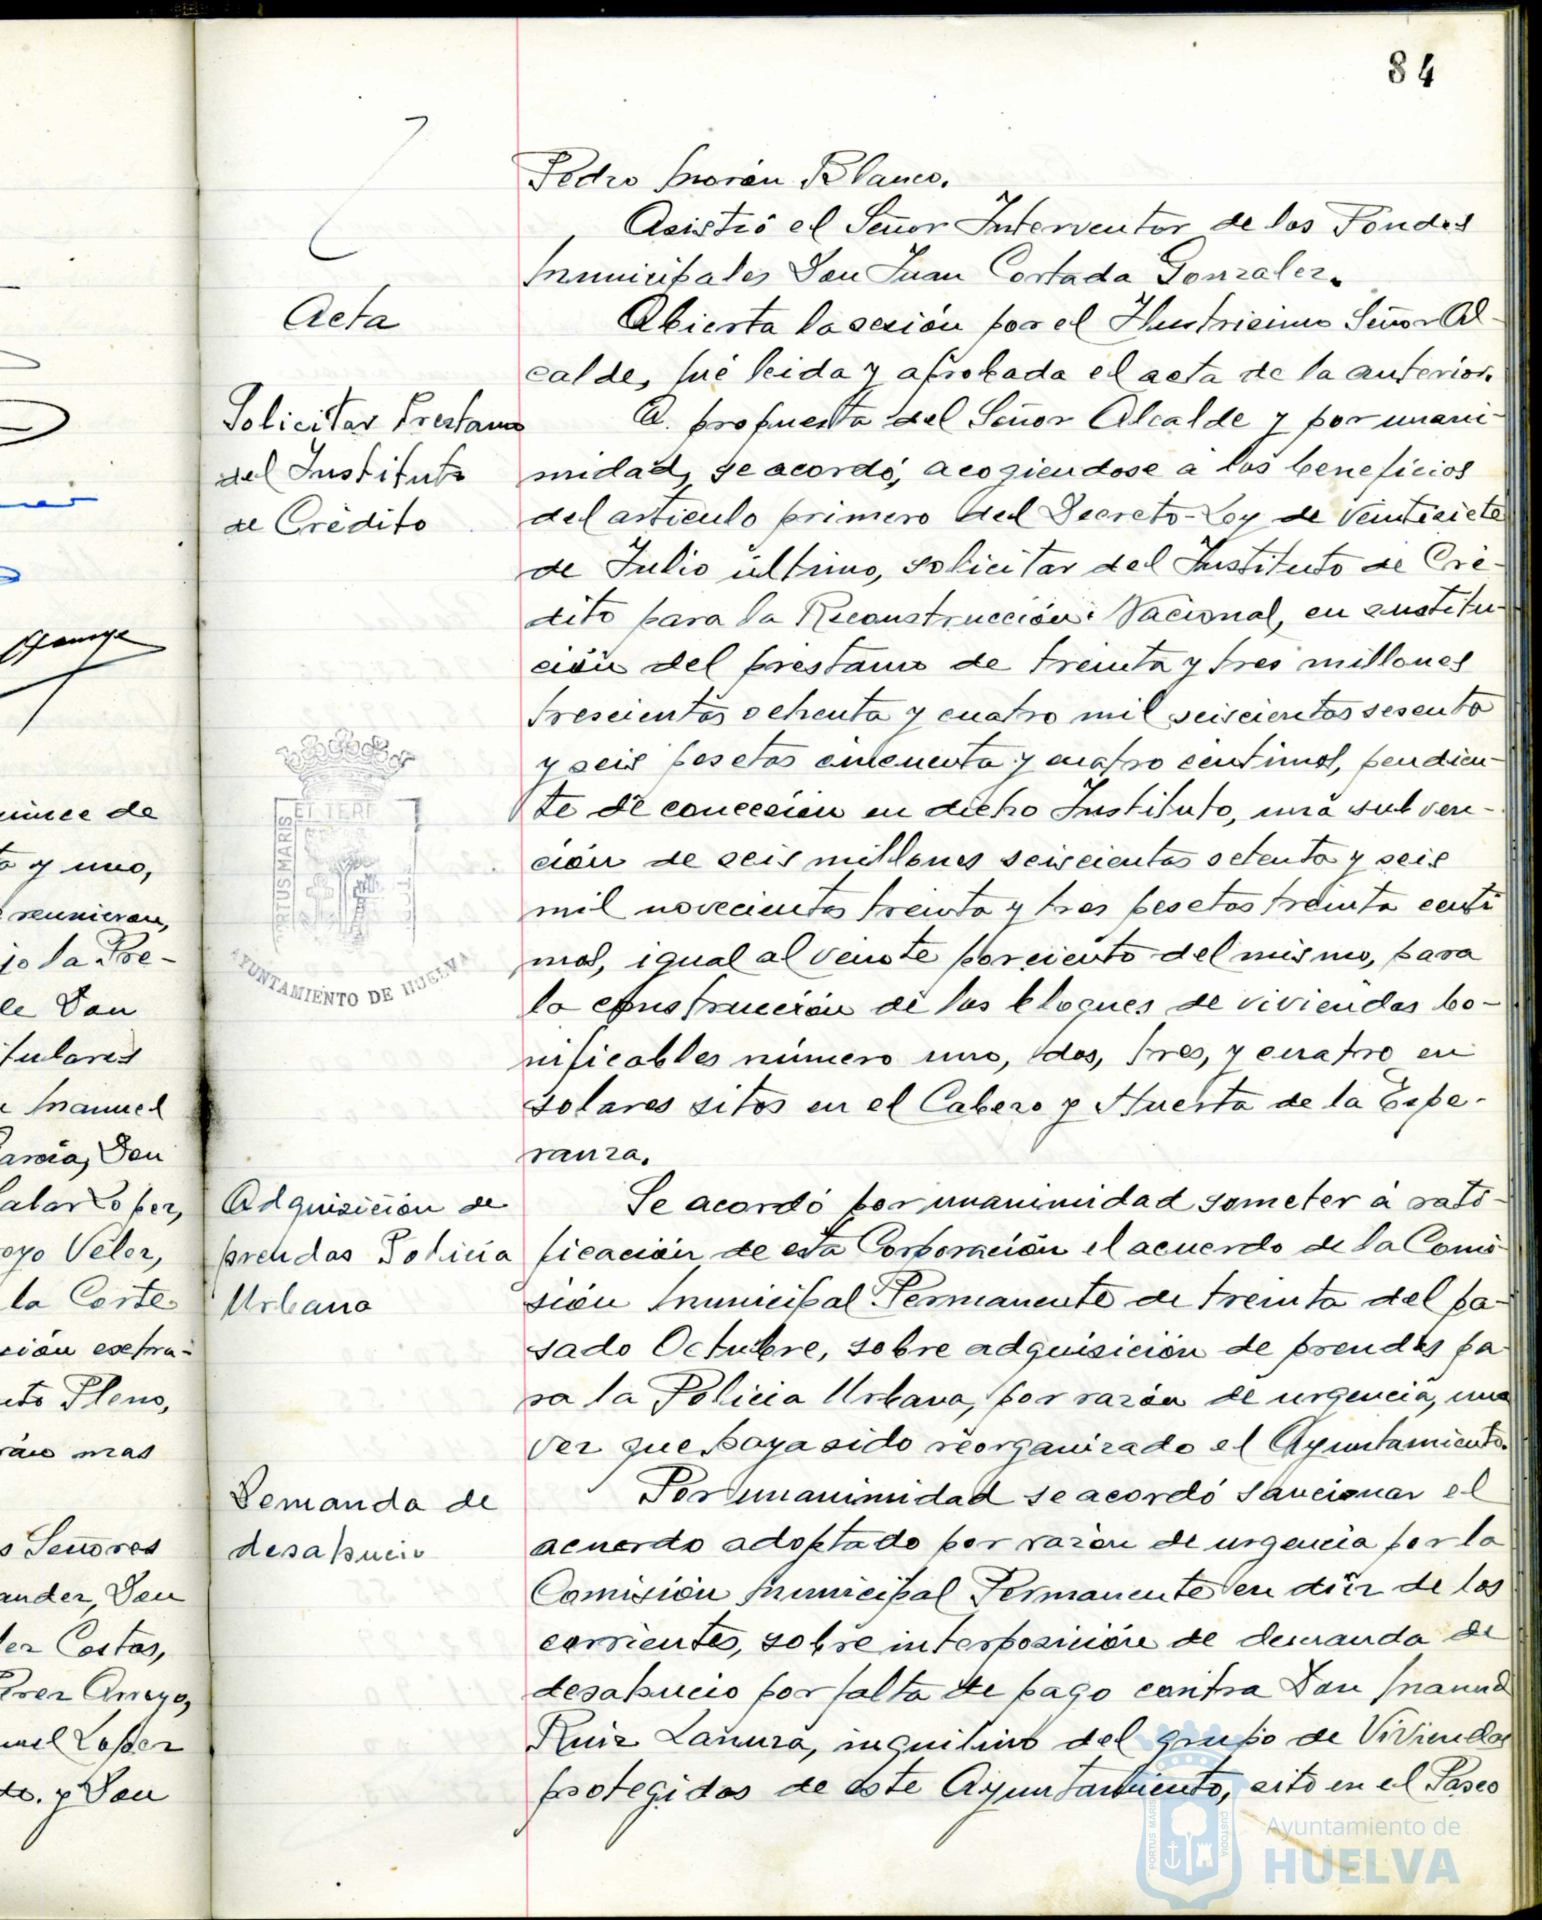 84
Pedro Morón Blanco.
Asistió el Señor Interventor de los Fondos
Municipales Don Juan Cortada Gonzalez.
Acta
Abierta la sesión por el Ilustrisimo Señor Al-
calde, fué leida y aprobada el acta de la anterior.
Solicitar Prestamo
del Instituto
de Crédito
A propuesta del Señor Alcalde y por unani-
midad, se acordó, acogiendose a los beneficios
del articulo primero del Decreto-Ley de Veintisiete
de Julio último, solicitar del Instituto de Cré-
dito para la Reconstrucción Nacional, en sustitu-
ción del préstamo de treinta y tres millones
trescientas ochenta y cuatro mil seiscientas sesenta
y seis pesetas cincuenta y cuatro centimos, pendien-
te de conceción en dicho Instituto, una subven-
ción de seis millones seiscientas setenta y seis
mil novecientas treinta y tres pesetas treinta centi
mos, igual al veinte por ciento del mismo, para
la construcción de los bloques de viviendas bo-
nificables número uno, dos, tres, y cuatro en
solares sitos en el Cabezo y Huerta de la Espe-
ranza.
Adquisición de
prendas Policia
Urbana
Se acordó por unanimidad someter á rati-
ficación de esta Corporación el acuerdo de la Comi-
sión Municipal Permanente de treinta del pa-
sado Octubre, sobre adquisición de prendas pa-
ra la Policia Urbana, por razón de urgencia, una
vez que haya sido reorganizado el Ayuntamiento.
Demanda de
desahucio
Por unanimidad se acordó sancionar el
acuerdo adoptado por razón de urgencia por la
Comisión Municipal Permanente en diez de los
corrientes, sobre interposición de demanda de
desahucio por falta de pago contra Don Manuel
Ruiz Lanuza, inquilino del grupo de Viviendas
protegidas de este Ayuntamiento, sito en el Paseo
PORTUS MARIS
ET TERR
AYUNTAMIENTO DE HUELVA
quince de
ta y uno,
reunieron,
jo la Pre-
de Don
tulares
n Manuel
García, Don
alar Lopez,
oyo Vélez,
la Corte
sión extra-
nto Pleno,
mas
s Señores
ander, Don
lez Costas,
Perez Arroyo,
nuel Lopez
do. y Don
PORTUS MARIS
CUSTODIA
Ayuntamiento de
HUELVA